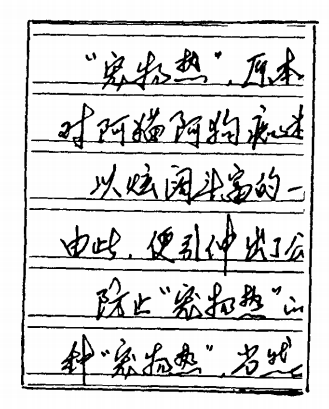 “宠物热”，原本
对阿猫阿狗痴迷
以炫阔斗富的一
由此，便引伸出了公
防止“宠物热”的
针“宠物热”，当然